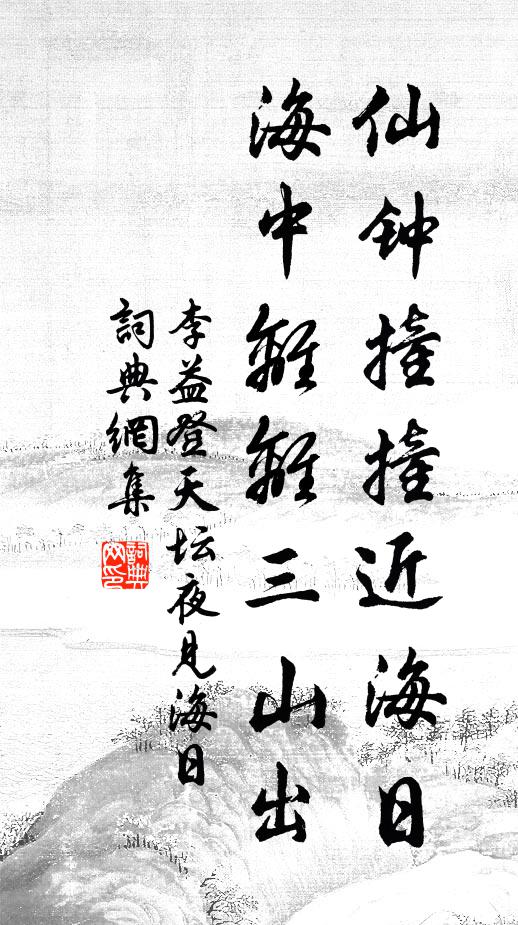 仙钟撞撞近海日
海中離離三山出
李益登天坛夜見海日
詞典網集
詞典
网印